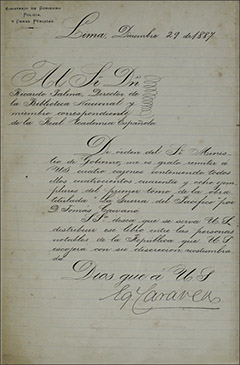 Ministerio de Gobierno
Policía
y Obras Públicas
Lima, Diciembre 29 de 1887.
Al Sr. Dn
Ricardo Palma, Director de
la Biblioteca Nacional y
miembro correspondiente
de la Real Academia Española
De orden del Sr. Minis-
tro de Gobierno, me es grato remitir a
US. cuatro cajones conteniendo todos
ellos cuatrocientos cuarenta y ocho ejem-
plares del primer tomo de la obra
titulada "La Guerra del Pacífico" por
D. Tomás Caivano
desea que se sirva US.
distribuir ese libro entre las personas
notables de la República que US
escojera con su discreción acostumbra
da
Dios gue a US